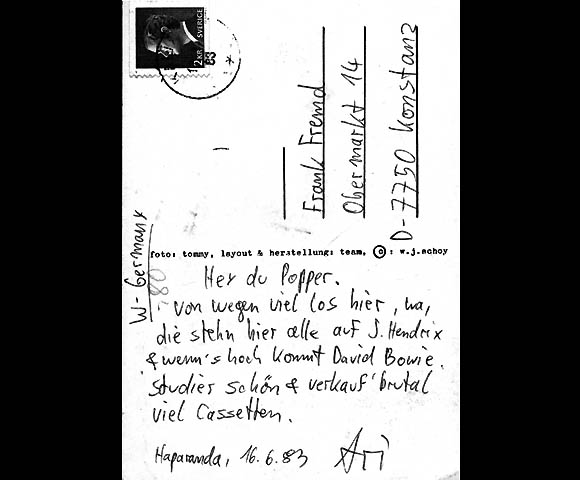 2 KR SVERIGE
83
Frank Fremd
Obermarkt 14
D-7750 Konstanz
W-Germany
foto: tommy, layout & herstellung: team, © : w.j.schoy
Hey du Popper.
von wegen viel los hier, wa,
die stehn hier alle auf J. Hendrix
& wenn's hoch kommt David Bowie.
studier schön & verkauf' brutal
viel Cassetten.
Haparanda, 16.6.83 Ari